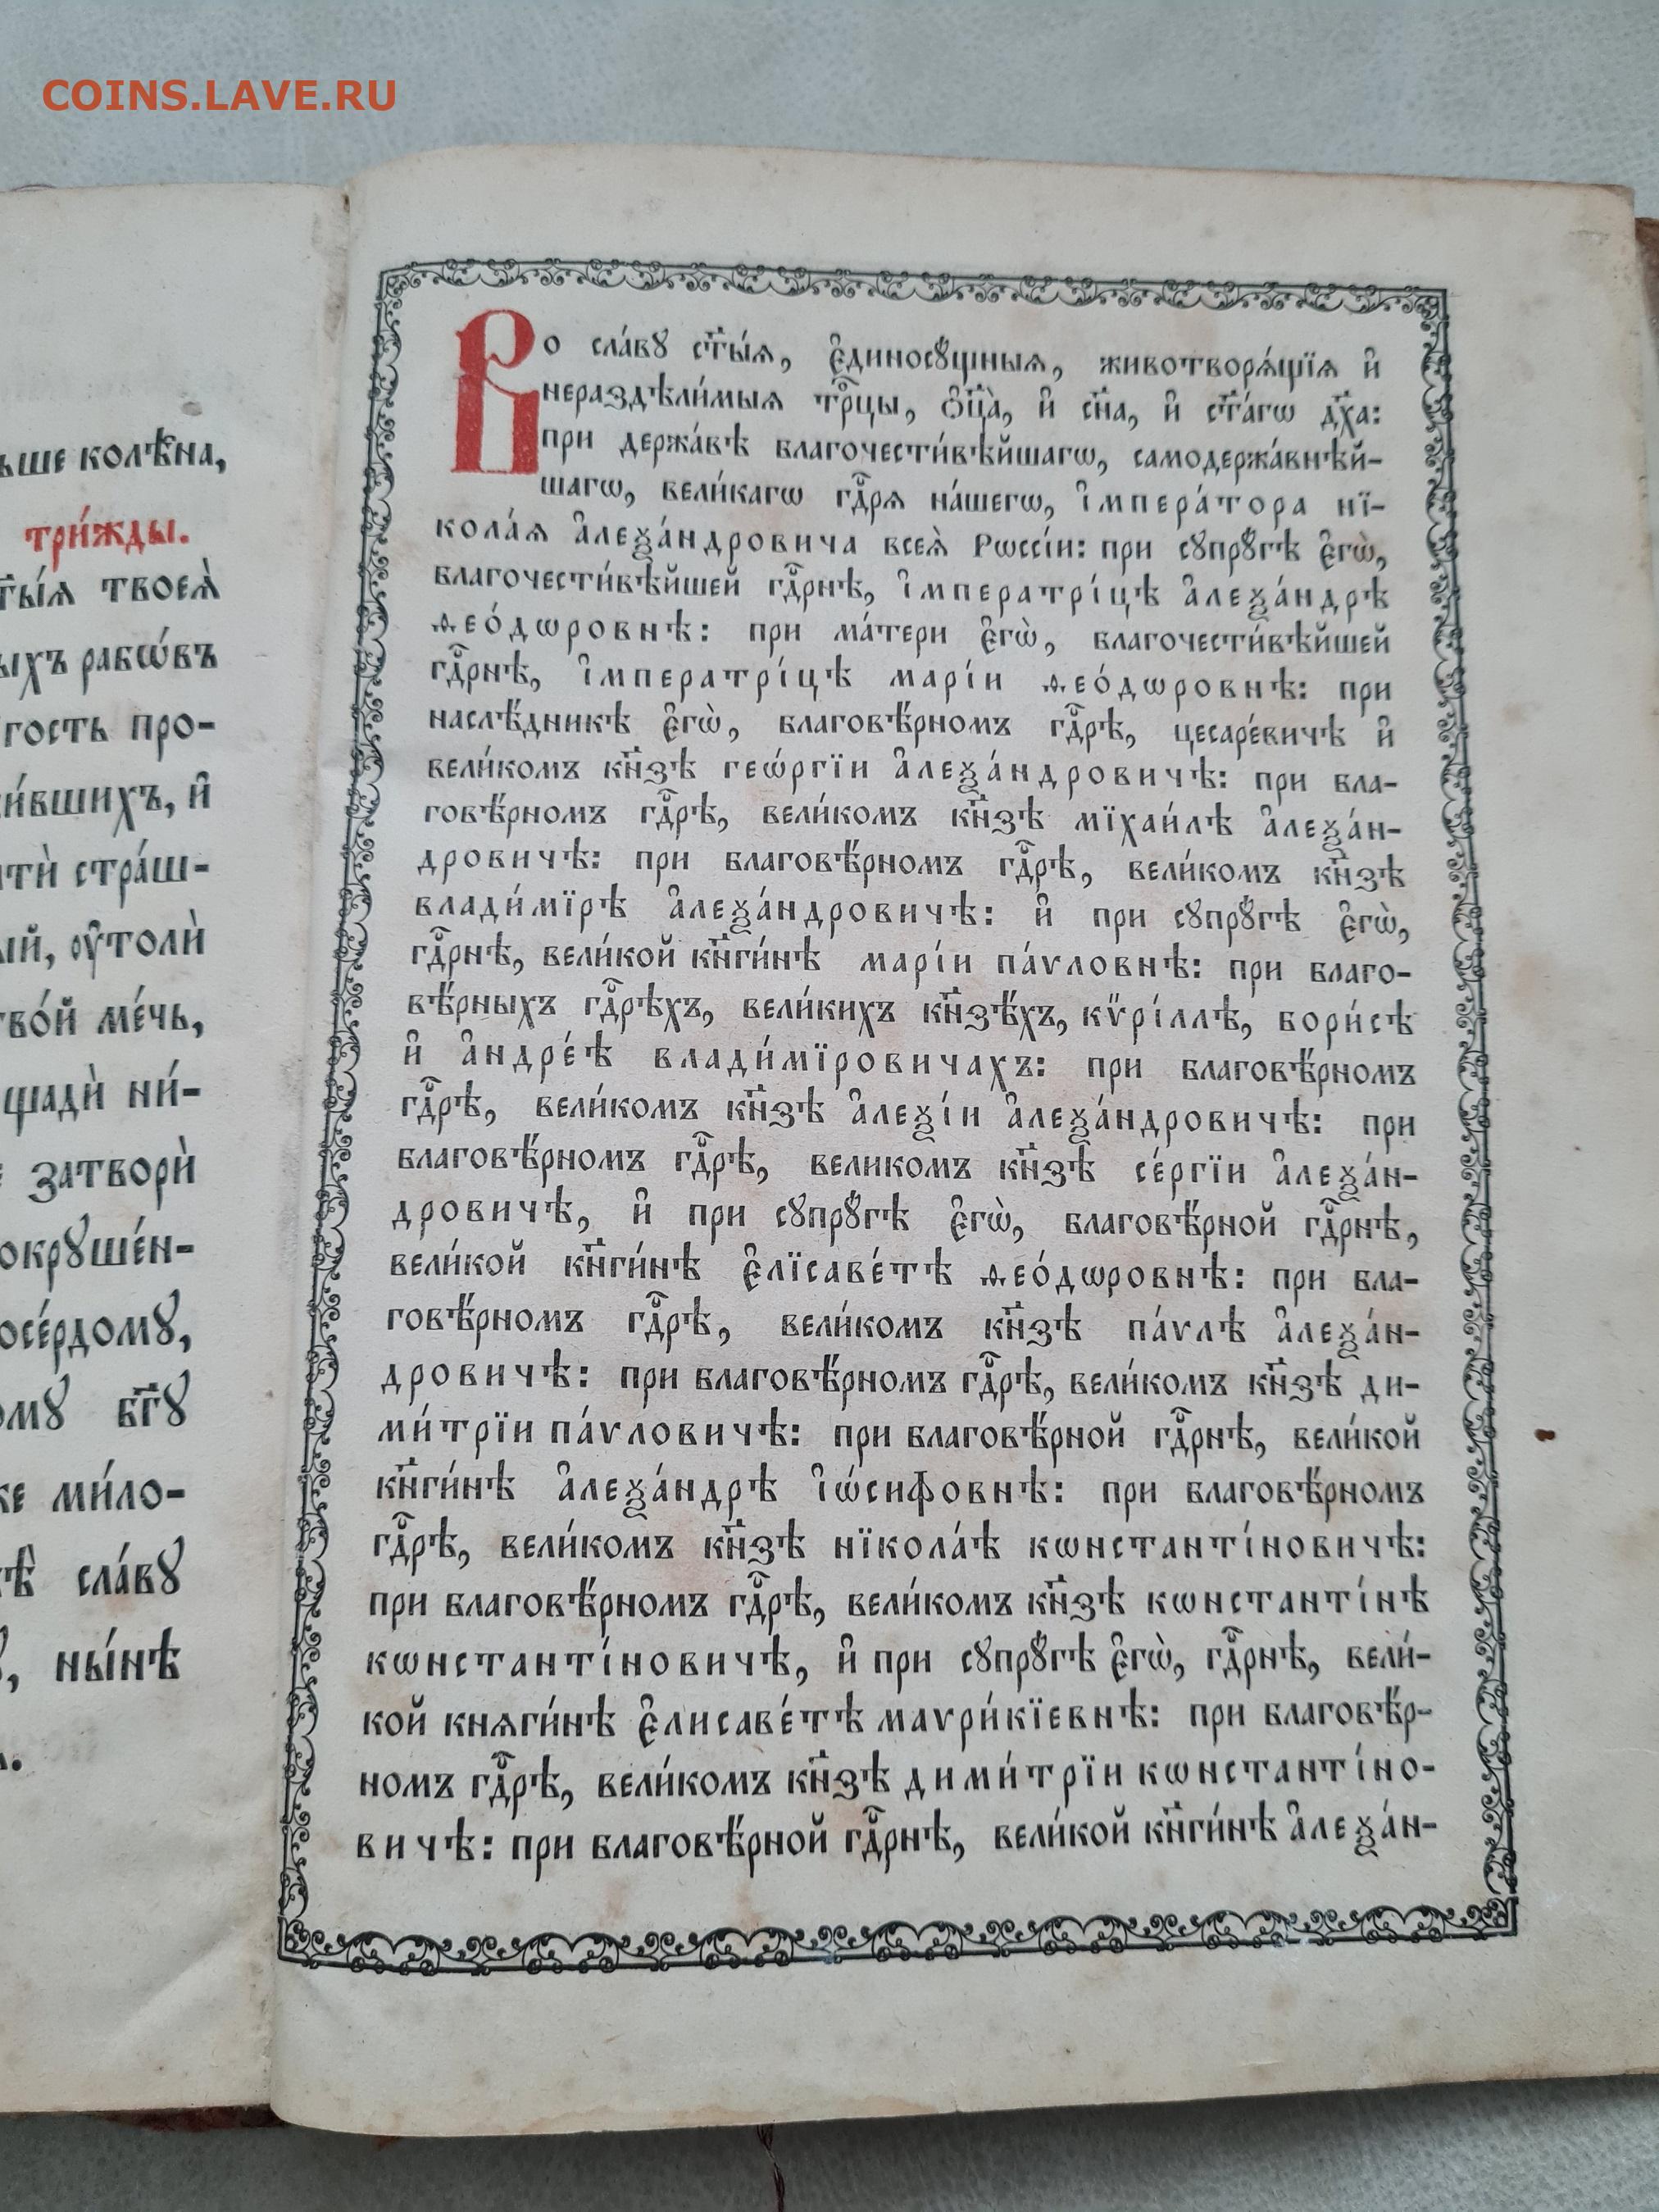 COINS.LAVE.RU
ьше колѣ́на,
три́жды.
ст҃ы́ѧ твоеѧ̀
ыхъ рабѡ́въ
гость про-
и́вшихъ, и҆
тѝ стра́ш-
ый, ᲂу҆толѝ
тво́й ме́чь,
щадѝ ни́-
затворѝ
окрꙋше́н-
осе́рдомꙋ,
омꙋ бг҃ꙋ
же ми́ло-
сла́вꙋ
ны́нѣ
Во сла́вꙋ ст҃ы́ѧ, є҆диносꙋ́щныѧ, животворѧ́щїѧ и҆
нераздѣли́мыѧ трⷪ҇цы, ѻ҆ц҃а̀, и҆ сн҃а, и҆ ст҃а́гѡ дх҃а:
при держа́вѣ благочести́вѣйшагѡ, самодержа́внѣй-
шагѡ, вели́кагѡ гдⷭ҇рѧ на́шегѡ, і҆мпера́тора нї-
кола́ѧ а҆леѯа́ндровича всеѧ̀ рѡссі́и: при сꙋпрꙋ́гѣ є҆гѡ̀,
благочести́вѣйшей гдⷭ҇рнѣ, і҆мператрі́цѣ а҆леѯа́ндрѣ
ѳео́дѡровнѣ: при ма́тери є҆гѡ̀, благочести́вѣйшей
гдⷭ҇рнѣ, і҆мператрі́цѣ марі́и ѳео́дѡровнѣ: при
наслѣ́дникѣ є҆гѡ̀, благовѣ́рномъ гдⷭ҇рѣ, цесаре́вичѣ и҆
вели́комъ кн҃зѣ геѡ́ргїи а҆леѯа́ндровичѣ: при бла-
говѣ́рномъ гдⷭ҇рѣ, вели́комъ кн҃зѣ мїхаи́лѣ а҆леѯа́н-
дровичѣ: при благовѣ́рномъ гдⷭ҇рѣ, вели́комъ кн҃зѣ
влади́мїрѣ а҆леѯа́ндровичѣ: и҆ при сꙋпрꙋ́гѣ є҆гѡ̀,
гдⷭ҇рнѣ, вели́кой кн҃ги́нѣ марі́и па́ѵловнѣ: при благо-
вѣ́рныхъ гдⷭ҇рѣхъ, вели́кихъ кн҃зѣ́хъ, кѷрі́ллѣ, бори́сѣ
и҆ а҆ндре́ѣ влади́мїровичахъ: при благовѣ́рномъ
гдⷭ҇рѣ, вели́комъ кн҃зѣ а҆леѯі́и а҆леѯа́ндровичѣ: при
благовѣ́рномъ гдⷭ҇рѣ, великомъ кн҃зѣ се́ргїи а҆леѯа́н-
дровичѣ, и҆ при сꙋпрꙋ́гѣ є҆гѡ̀, благовѣ́рной гдⷭ҇рнѣ,
вели́кой кн҃ги́нѣ є҆лїсаве́тѣ ѳео́дѡровнѣ: при бла-
говѣ́рномъ гдⷭ҇рѣ, вели́комъ кн҃зѣ па́ѵлѣ а҆леѯа́н-
дровичѣ: при благовѣ́рномъ гдⷭ҇рѣ, вели́комъ кн҃зѣ ди-
ми́трїи па́ѵловичѣ: при благовѣ́рной гдⷭ҇рнѣ, вели́кой
кн҃ги́нѣ а҆леѯа́ндрѣ і҆ѡ́сифовнѣ: при благовѣ́рномъ
гдⷭ҇рѣ, вели́комъ кн҃зѣ нїкола́ѣ кѡнстанті́новичѣ:
при благовѣ́рномъ гдⷭ҇рѣ, вели́комъ кн҃зѣ кѡнстанті́нѣ
кѡнстанті́новичѣ, и҆ при сꙋпрꙋ́гѣ є҆гѡ̀, гдⷭ҇рнѣ, вели́-
кой княги́нѣ є҆лисаве́тѣ маѵри́кїевнѣ: при благовѣ́р-
номъ гдⷭ҇рѣ, вели́комъ кн҃зѣ дими́трїи кѡнстанті́но-
вичѣ: при благовѣ́рной гдⷭ҇рнѣ, вели́кой кн҃ги́нѣ а҆леѯа́н-